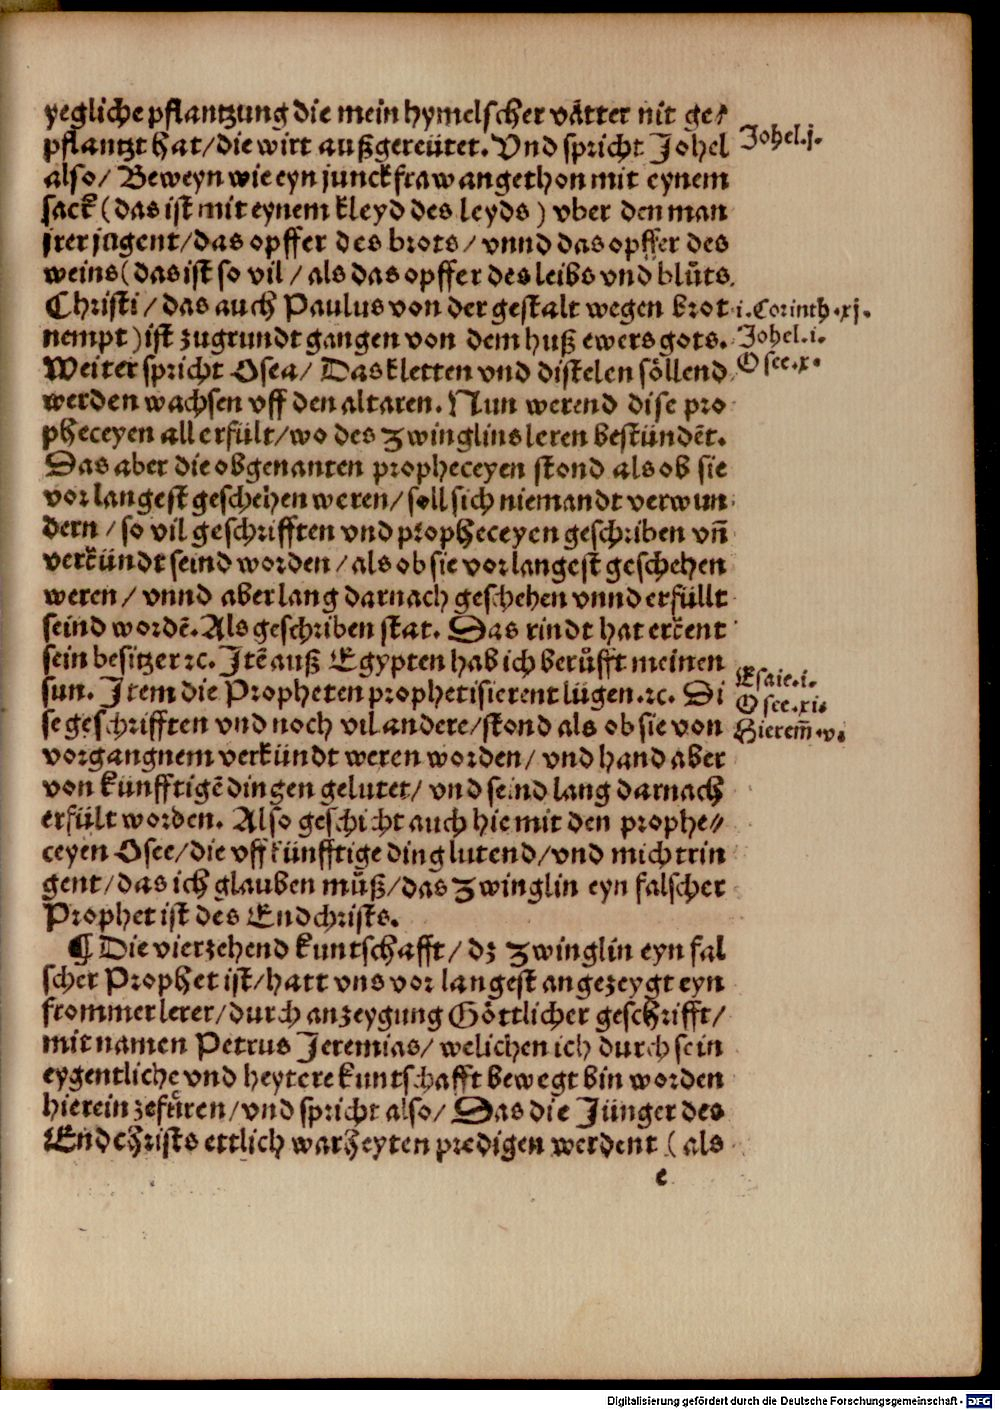 yegliche pflantzung die mein hymelscher våtter nit ge⸗
pflantzt hat/die wirt außgereütet. Vnd spricht Johel
Johel.j.
also/ Beweyn wie eyn junckfraw angethon mit eynem
sack (das ist mit eynem kleyd des leyds) vber den man
jrer jugent/das opffer des brots/ vnnd das opffer des
weins (das ist so vil/ als das opffer des leibs vnd blůts
Christi/ das auch Paulus von der gestalt wegen brot
i.Corinth.xj.
nempt) ist zugrundt gangen von dem huß ewers gots.
Johel.i.
Weiter spricht Osea/ Das kletten vnd distelen söllend
Osee.x.
werden wachsen vff den altaren. Nun werend dise pro
pheceyen all erfült/wo des Zwinglins leren bestündēt.
Das aber die obgenanten propheceyen stond als ob sie
vor langest geschehen weren/ soll sich niemandt verwun
dern/ so vil geschrifften vnd propheceyen geschriben vñ
verkündt seind worden/ als ob sie vor langest geschehen
weren/ vnnd aber lang darnach geschehen vnnd erfüllt
seind wordē. Als geschriben stat. Das rindt hat erkent
sein besitzer ꝛc. Jtē auß Egypten hab ich berůfft meinen
Esaie.i.
sun. Jtem die Propheten prophetisierent lügen.ꝛc. Di
Osee.xi.
se geschrifften vnd noch vil andere/stond als ob sie von
Hierem̄.v.
vorgangnem verkündt weren worden/ vnd hand aber
von künfftigē dingen gelutet/ vnd seind lang darnach
erfült worden. Also geschicht auch hie mit den prophe⸗
ceyen Osee/die vff künfftige ding lutend/vnd mich trin
gent/das ich glauben můß/das Zwinglin eyn falscher
Prophet ist des Endchrists.
¶ Die vierzehend kuntschafft/ dz Zwinglin eyn fal
scher Prophet ist/hatt vns vor langest angezeygt eyn
frommer lerer/durch anzeygung Göttlicher geschrifft/
mit namen Petrus Jeremias/ welichen ich durch sein
eygentliche vnd heytere kuntschafft bewegt bin worden
hierein zefůren/vnd spricht also/ Das die Jünger des
Endchrists ettlich warheyten predigen werdent (als
e
Digitalisierung gefördert durch die Deutsche Forschungsgemeinschaft - DFG